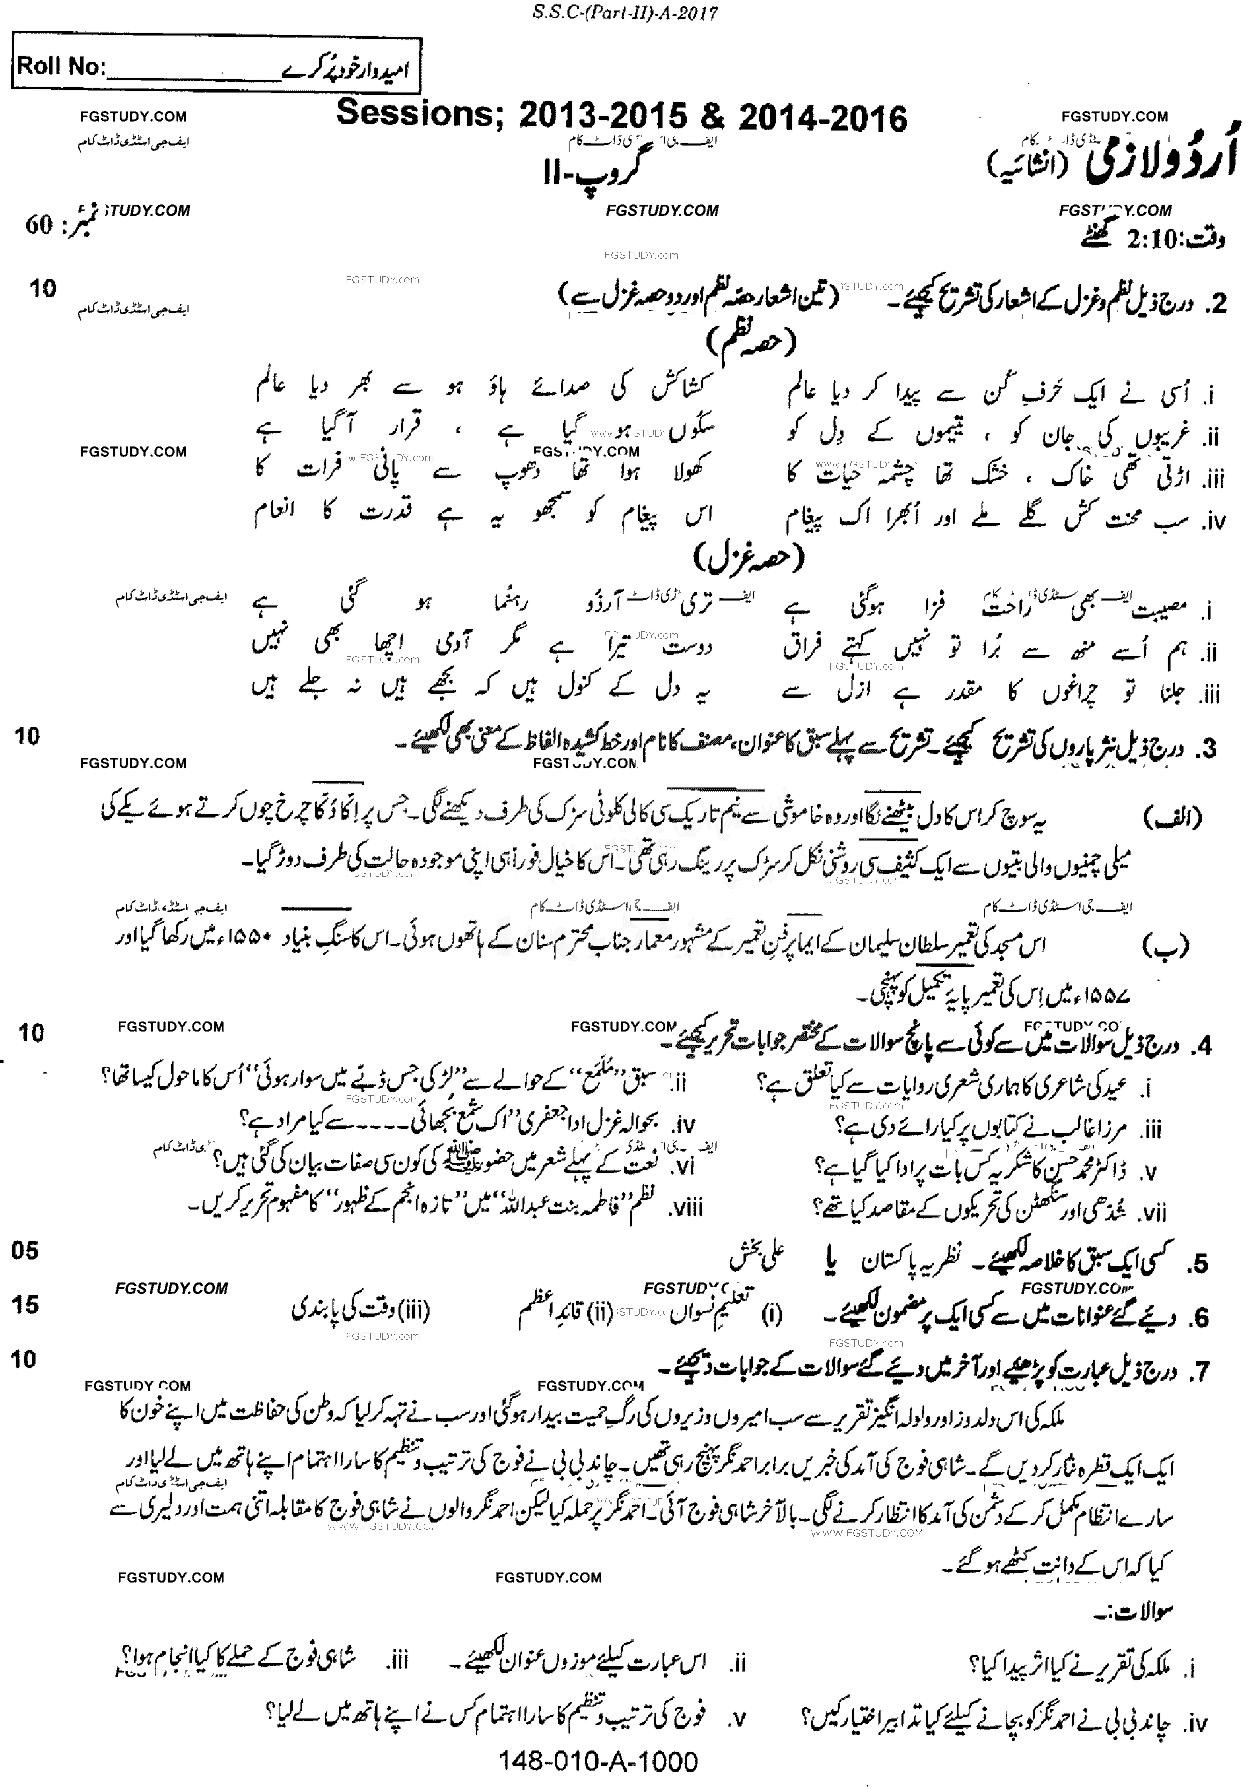 S.S.C-(Part-II)-A-2017
Roll No:____________ امیدوار خود پُر کرے
Sessions; 2013-2015 & 2014-2016
FGSTUDY.COM FGSTUDY.COM
اُردُو لازمی (انشائیہ)
گروپ-II
وقت: 2:10 گھنٹے نمبر: 60
2. درج ذیل نظم و غزل کے اشعار کی تشریح کیجیئے۔ (تین اشعار حصّہ نظم اور دو حصہ غزل سے) 10
(حصہ نظم)
i. اُسی نے ایک حَرفِ کُن سے پیدا کر دیا عالم کشاکش کی صدائے ہاؤ ہو سے بھر دیا عالم
ii. غریبوں کی جان کو ، یتیموں کے دِل کو سکُوں ہو گیا ہے ، قرار آ گیا ہے
iii. اڑتی تھی خاک ، خشک تھا چشمہ حیات کا کھولا ہوا تھا دھوپ سے پانی فرات کا
iv. سب محنت کش گلے ملے اور اُبھرا اک پیغام اس پیغام کو سمجھو یہ ہے قدرت کا انعام
(حصہ غزل)
i. مصیبت بھی راحت فزا ہوگئی ہے تری آرزُو رہنُما ہو گئی ہے
ii. ہم اُسے منھ سے بُرا تو نہیں کہتے فراق دوست تیرا ہے مگر آدمی اچھا بھی نہیں
iii. جلنا تو چراغوں کا مقدر ہے ازل سے یہ دل کے کنول ہیں کہ بجھے ہیں نہ جلے ہیں
3. درج ذیل نثر پاروں کی تشریح کیجیئے۔ تشریح سے پہلے سبق کا عنوان، مصنف کا نام اور خط کشیدہ الفاظ کے معنی بھی لکھیئے۔ 10
(الف) یہ سوچ کر اس کا دل بیٹھنے لگا اور وہ خاموشی سے نیم تاریک سی کالی کلوٹی سڑک کی طرف دیکھنے لگی۔ جس پر اِکا دُکا چرخ چوں کرتے ہوئے یکے کی
میلی چمنیوں والی بتیوں سے ایک کثیف سی روشنی نکل کر سڑک پر رینگ رہی تھی۔ اس کا خیال فوراً ہی اپنی موجودہ حالت کی طرف دوڑ گیا۔
(ب) اس مسجد کی تعمیر سلطان سلیمان کے ایما پر فنِ تعمیر کے مشہور معمار جناب محترم سنان کے ہاتھوں ہوئی۔ اس کا سنگِ بنیاد ۱۵۵۰ء میں رکھا گیا اور
۱۵۵۷ء میں اِس کی تعمیر پایۂ تکمیل کو پہنچی۔
4. درج ذیل سوالات میں سے کوئی سے پانچ سوالات کے مختصر جوابات تحریر کیجیئے۔ 10
i. عید کی شاعری کا ہماری شعری روایات سے کیا تعلق ہے؟ ii. سبق "ملمّع" کے حوالے سے "لڑکی جس ڈبے میں سوار ہوئی" اُس کا ماحول کیسا تھا؟
iii. مرزا غالب نے کتابوں پر کیا رائے دی ہے؟ iv. بحوالہ غزل ادا جعفری "اک شمع بجھائی ----- سے کیا مراد ہے؟
v. ڈاکٹر محمد حسین کا شکریہ کس بات پر ادا کیا گیا ہے؟ vi. نعت کے پہلے شعر میں حضور ﷺ کی کون سی صفات بیان کی گئی ہیں؟
vii. شُدھی اور سنگھٹن کی تحریکوں کے مقاصد کیا تھے؟ viii. نظم "فاطمہ بنت عبداللہ" میں "تازہ انجم کے ظہور" کا مفہوم تحریر کریں۔
5. کسی ایک سبق کا خلاصہ لکھیئے۔ نظریہ پاکستان یا علی بخش 05
6. دیئے گئے عنوانات میں سے کسی ایک پر مضمون لکھیئے۔ (i) تعلیمِ نسواں (ii) قائدِ اعظم (iii) وقت کی پابندی 15
7. درج ذیل عبارت کو پڑھیے اور آخر میں دیئے گئے سوالات کے جوابات دیجئے۔ 10
ملکہ کی اس دلدوز اور ولولہ انگیز تقریر سے سب امیروں وزیروں کی رگِ حمیت بیدار ہو گئی اور سب نے تہہ کر لیا کہ وطن کی حفاظت میں اپنے خون کا
ایک ایک قطرہ نثار کر دیں گے۔ شاہی فوج کی آمد کی خبریں برابر احمد نگر پہنچ رہی تھیں۔ چاند بی بی نے فوج کی ترتیب و تنظیم کا سارا اہتمام اپنے ہاتھ میں لے لیا اور
سارے انتظام مکمل کر کے دشمن کی آمد کا انتظار کرنے لگی۔ بالآخر شاہی فوج آئی۔ احمد نگر پر حملہ کیا لیکن احمد نگر والوں نے شاہی فوج کا مقابلہ اتنی ہمت اور دلیری سے
کیا کہ اس کے دانت کھٹے ہو گئے۔
سوالات:۔
i. ملکہ کی تقریر نے کیا اثر پیدا کیا؟ ii. اس عبارت کیلئے موزوں عنوان لکھیئے۔ iii. شاہی فوج کے حملے کا کیا انجام ہوا؟
iv. چاند بی بی نے احمد نگر کو بچانے کیلئے کیا تدابیر اختیار کیں؟ v. فوج کی ترتیب و تنظیم کا سارا اہتمام کس نے اپنے ہاتھ میں لے لیا؟
148-010-A-1000